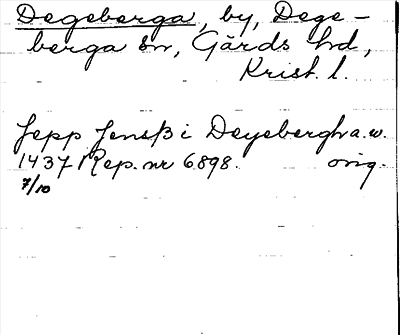 Degeberga, by, Dege-
berga sn, Gärds hd,
Krist. l.
Jepp Jensß i Deyebergha.w.
1437 Rep. nr 6898. orig.
7/10